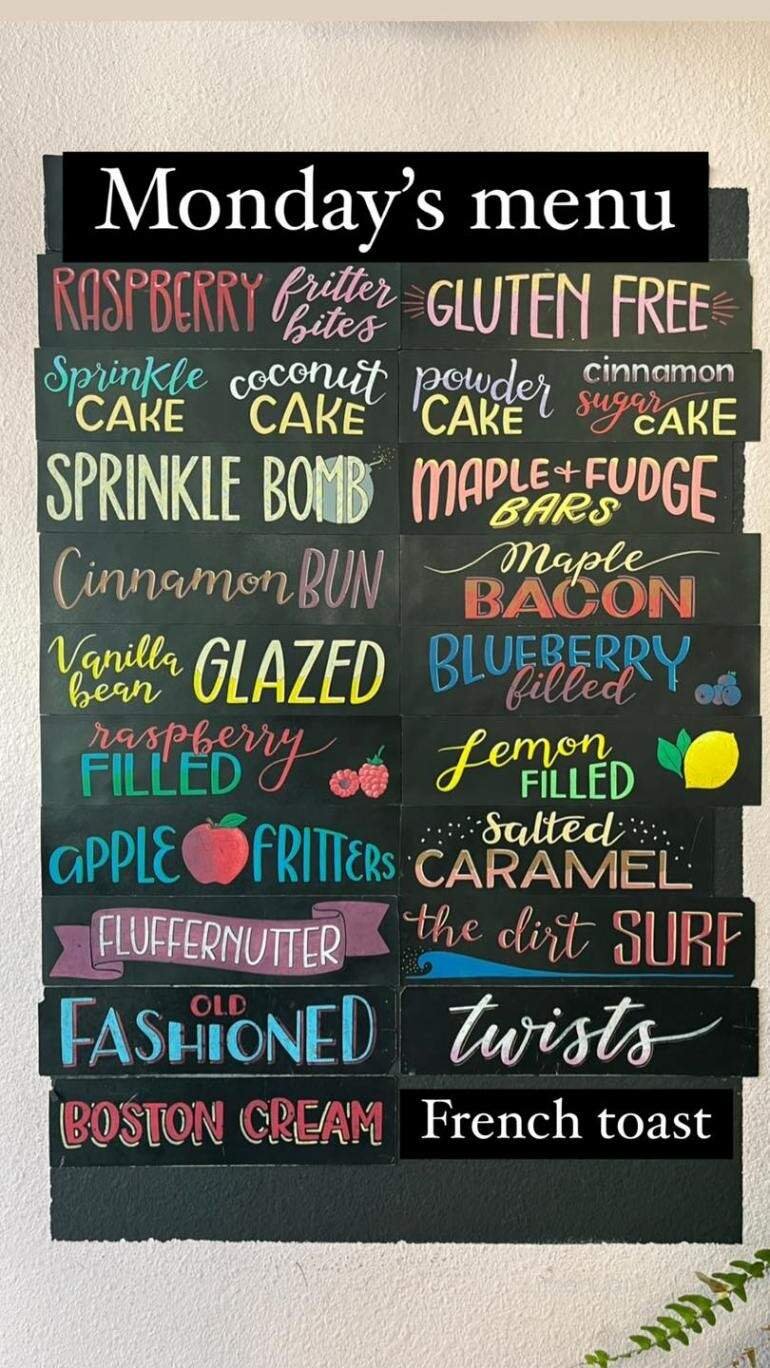 Monday's menu
RASPBERRY fritter bites
GLUTEN FREE
Sprinkle CAKE
coconut CAKE
powder CAKE
cinnamon sugar CAKE
SPRINKLE BOMB
MAPLE + FUDGE BARS
Cinnamon BUN
Maple BACON
Vanilla bean GLAZED
BLUEBERRY filled
raspberry FILLED
Lemon FILLED
APPLE FRITTERs
Salted CARAMEL
FLUFFERNUTTER
the dirt SURF
OLD FASHIONED
twists
BOSTON CREAM
French toast